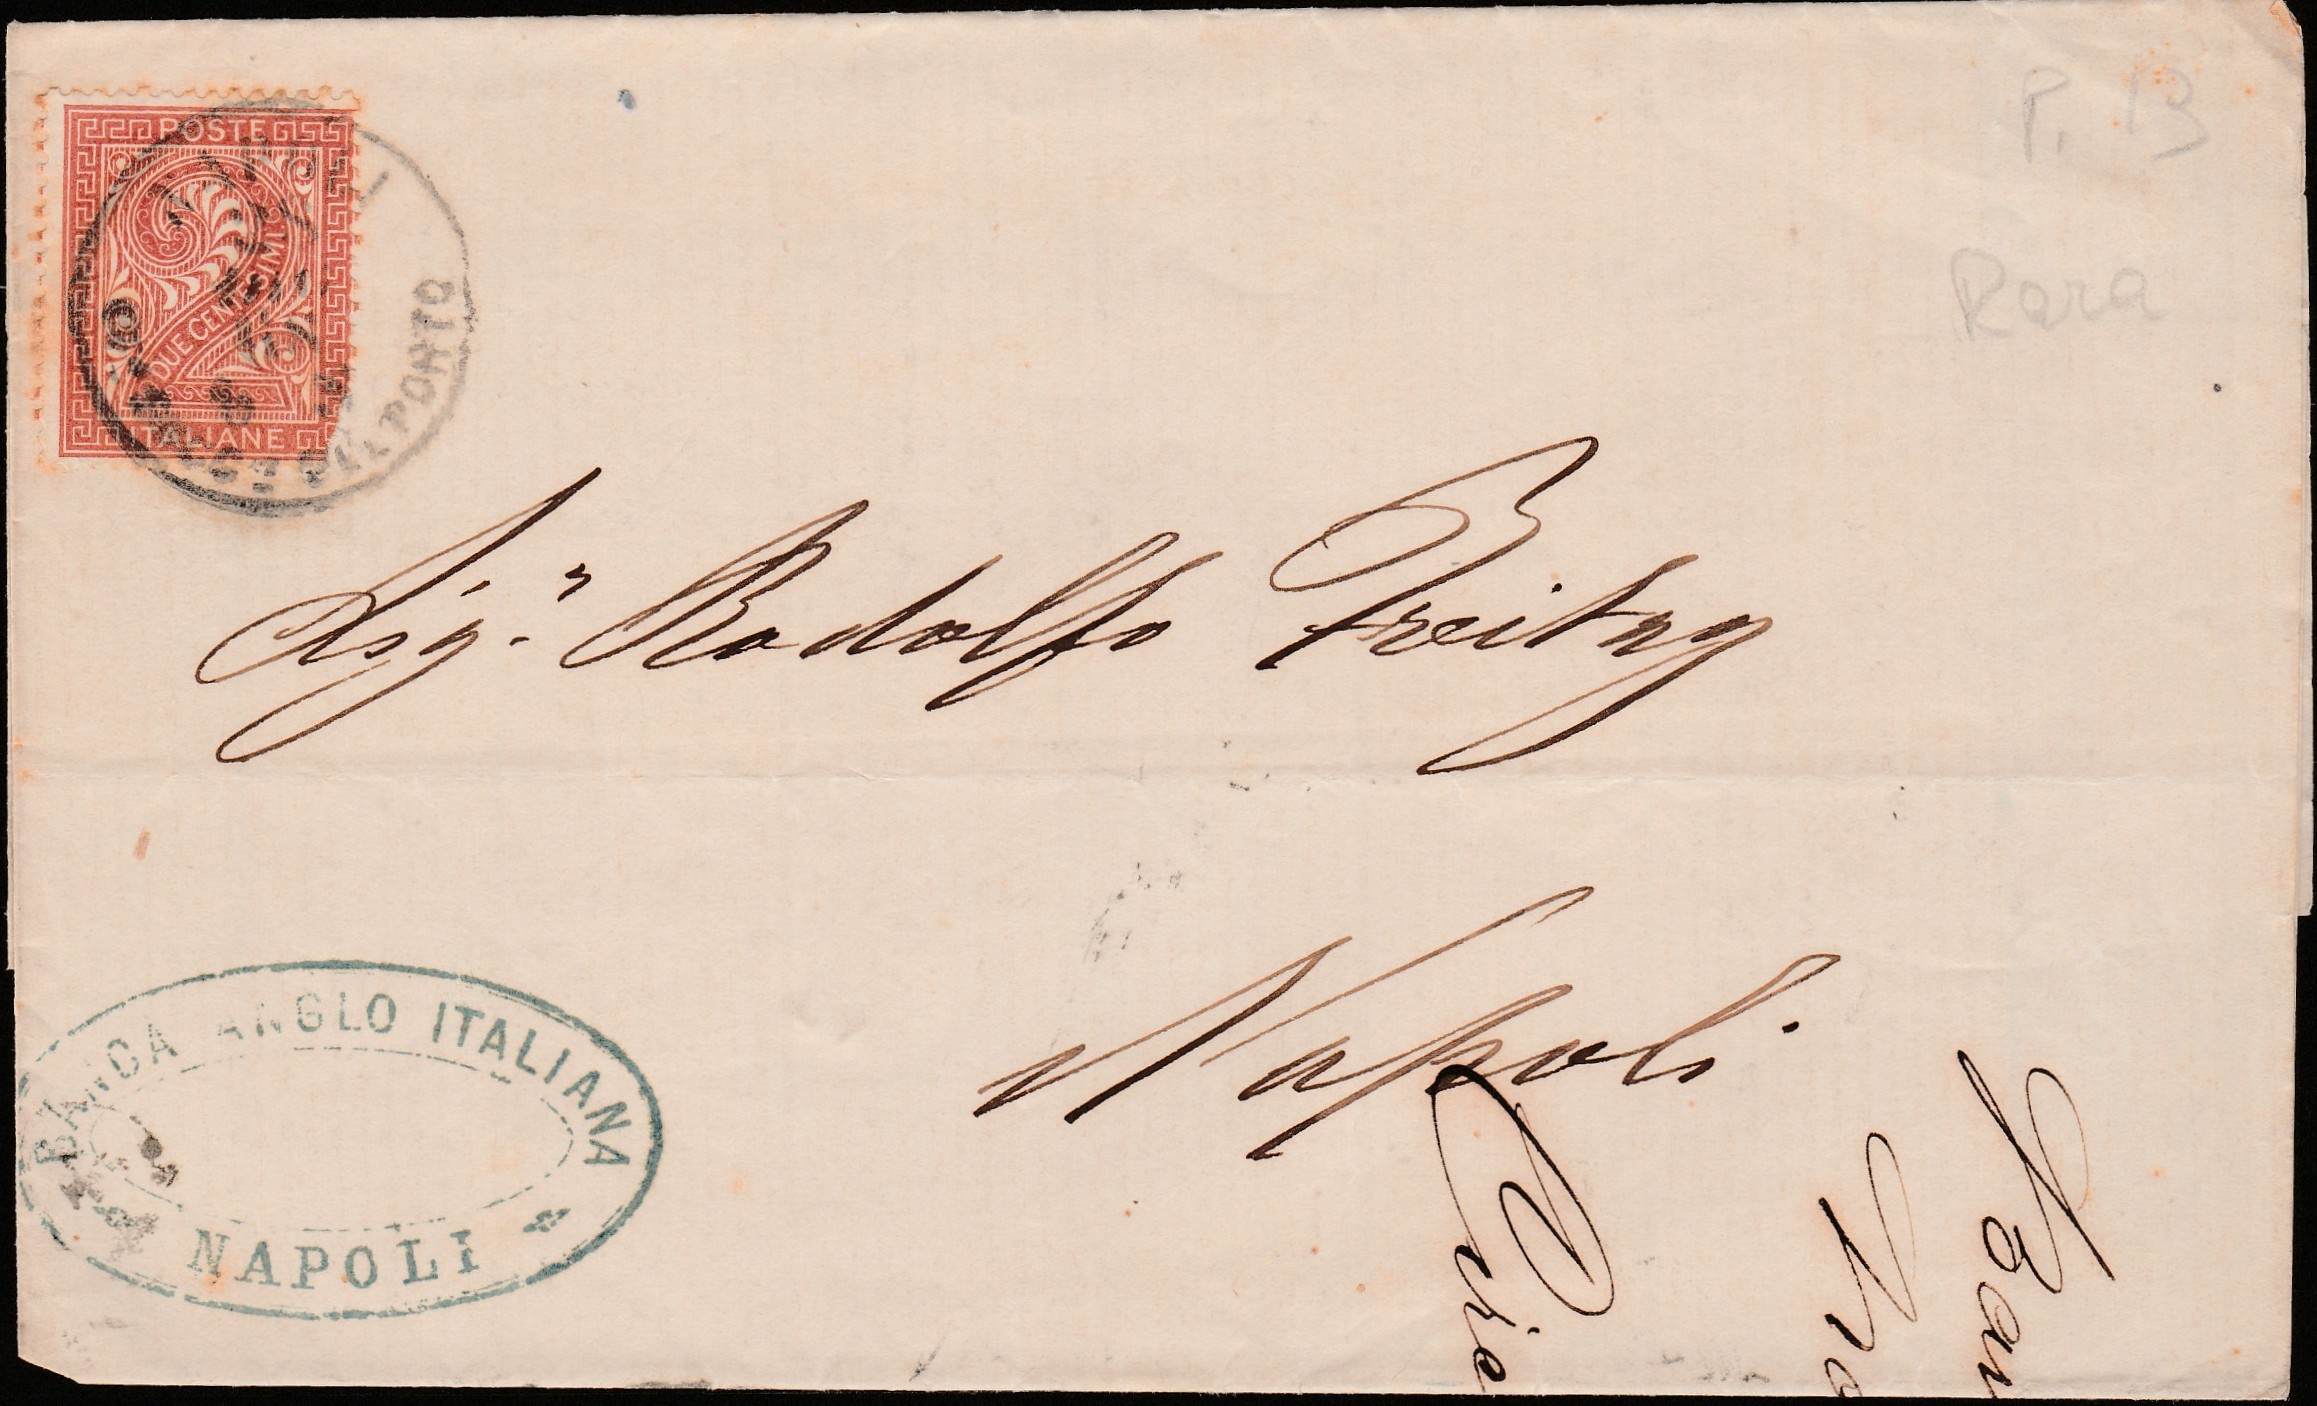 P. 13
Rara
POSTE
DUE CENTESIMI
ITALIANE
NAPOLI
PORTO
Sig.r Rodolfo Freitag
Napoli
BANCA ANGLO ITALIANA
NAPOLI